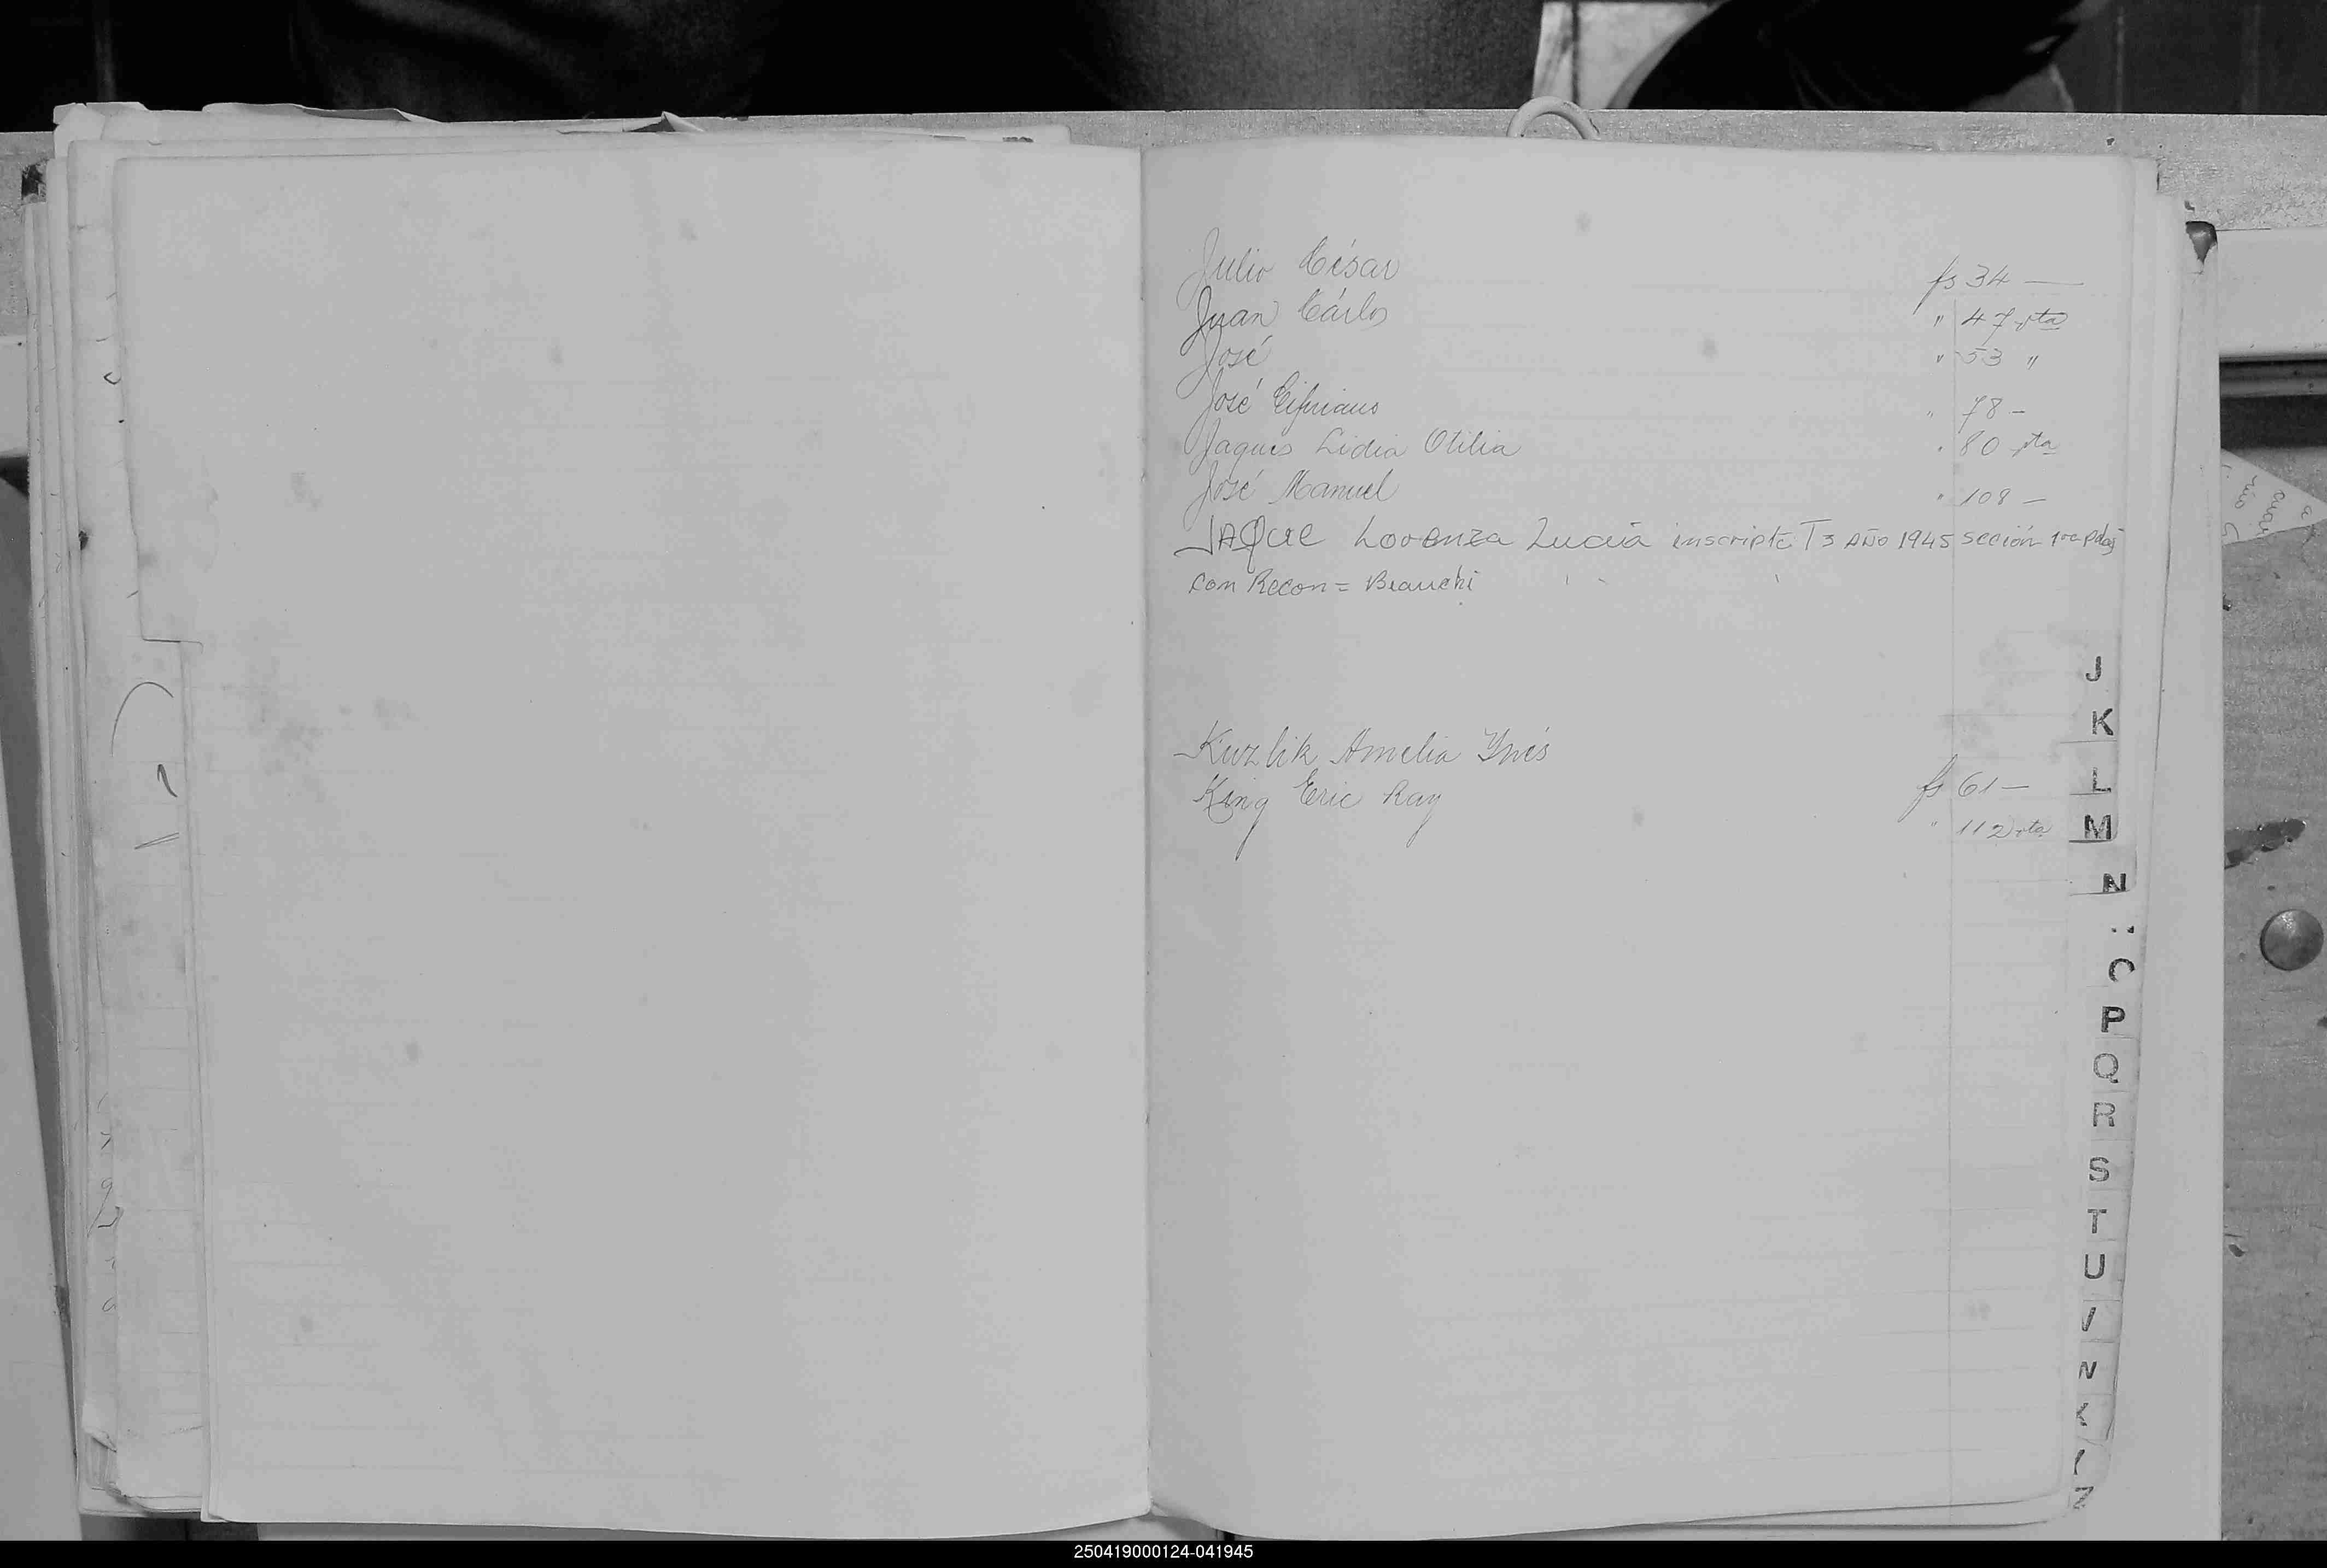 Julio César fs 34 —
Juan Cárlos " 47 vta
José " 53 "
José Cipriano " 78 –
Jaques Lidia Otilia " 80 vta
José Manuel " 108 –
JAQUE Lorenza Lucia inscripta T3 AÑO 1945 sección 1ra
con Recon = Bianchi
Kuzlik Amelia Ynés fs 61 –
King Eric Ray " 112 vta
J
K
L
M
N
P
Q
R
S
T
U
250419000124-041945